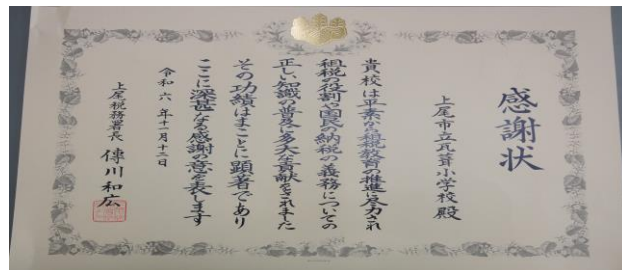 感謝状
上尾市立瓦葺小学校殿
貴校は平素から租税教育の推進に尽力され
租税の役割や国民の納税の義務についての
正しい知識の普及に多大な貢献をされました
その功績はまことに顕著であり
ここに深甚なる感謝の意を表します
令和六年十一月十二日
上尾税務署長 傳川和広